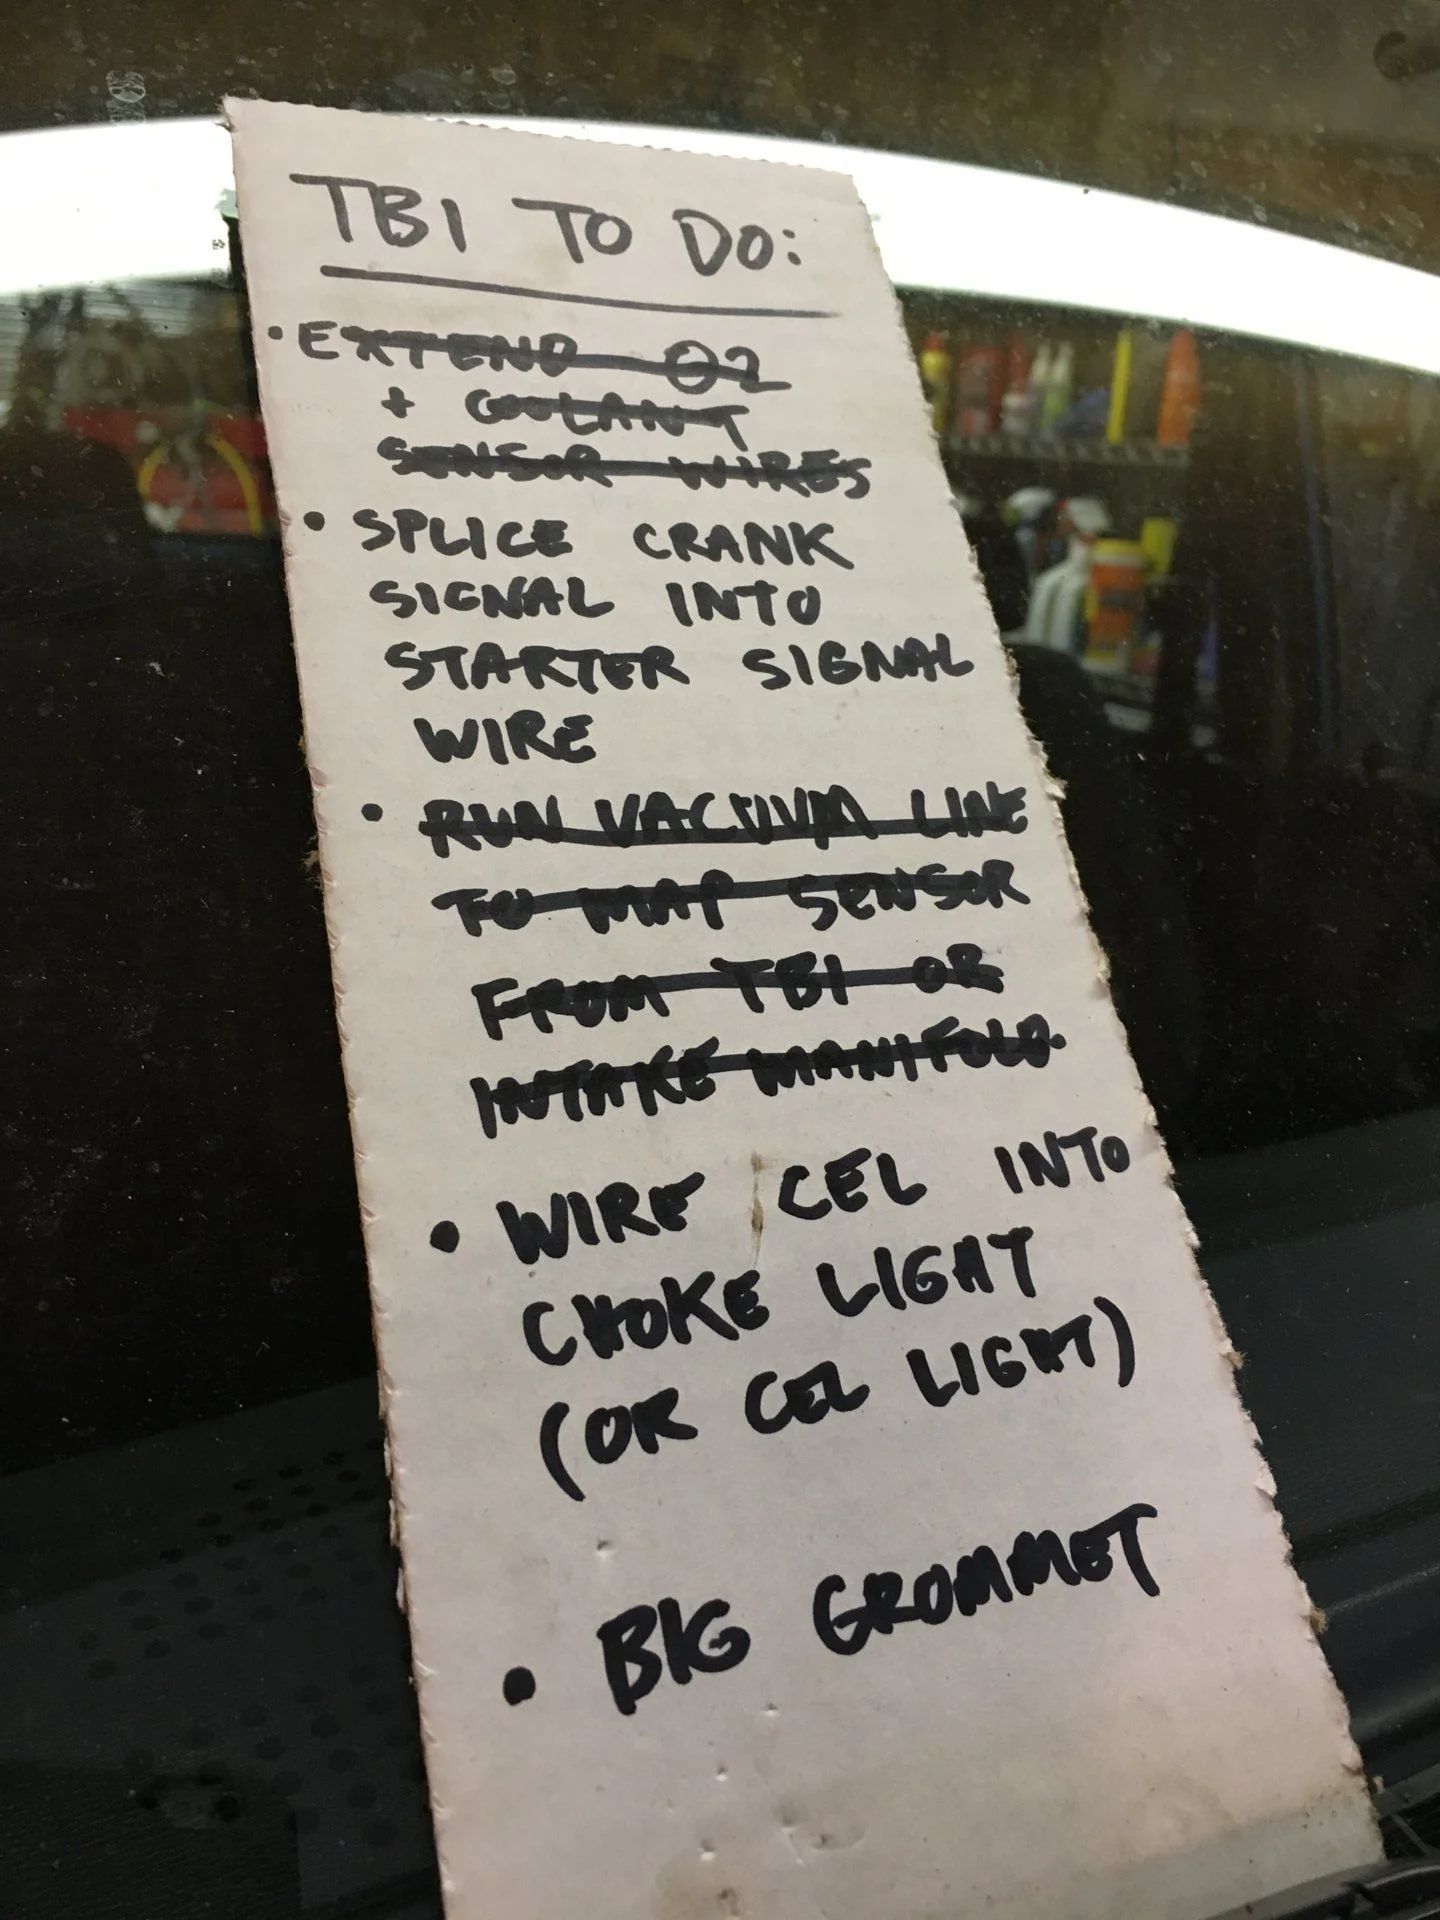 TBI TO DO:
• EXTEND O2
+ COOLANT
SENSOR WIRES
• SPLICE CRANK
SIGNAL INTO
STARTER SIGNAL
WIRE
• RUN VACUUM LINE
TO MAP SENSOR
FROM TBI OR
INTAKE MANIFOLD.
• WIRE CEL INTO
CHOKE LIGHT
(OR CEL LIGHT)
• BIG GROMMET